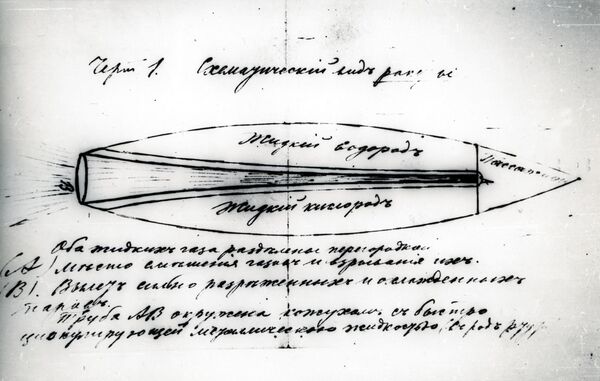 Черт 1. Схематическій видъ ракеты
Жидкій водородъ
Пассажиры
B
Жидкій кислородъ
Оба жидкихъ газа раздѣлены перегородкой
(A) Мѣсто смѣшенія газовъ и взрыванія ихъ.
(B). Вылетъ сильно разрѣженныхъ и охлажденныхъ
паровъ.
Труба AB окружена кожухомъ съ быстро
циркулирующей металлического жидкостью